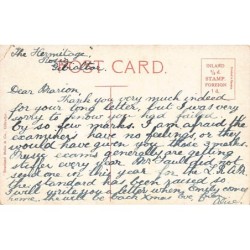 The Hermitage,
Gibraltar.
POST CARD.
INLAND
½ d.
STAMP
FOREIGN
1 d.
Dear Marion,
Thank you very much indeed
for your long letter, but I was very
sorry to know you had failed
by so few marks. I am afraid the
examiners have no feelings, or they
would have given you those 2 marks.
These exams generally are getting
stiffer every year. Mr. did not
send one in this year for the
the standard has been raised so.
I will write you a letter when Emily comes
home, should be back Xmas